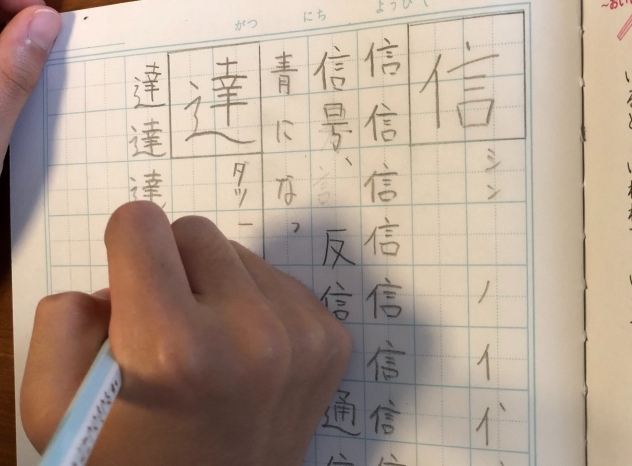 がつ にち ようび
信
シン
ノイイ
信信信信信信信
信号、反信通信
青になっ
達
タツ一
達達達